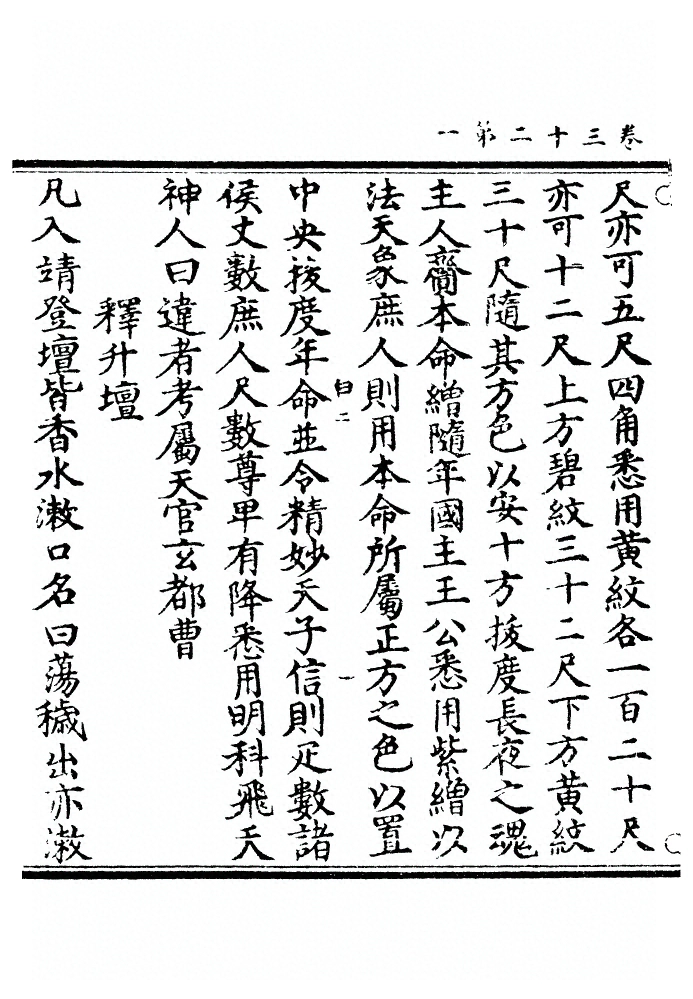 卷三十二第一
尺亦可五尺四角悉用黄紋各一百二十尺
亦可十二尺上方碧紋三十二尺下方黄紋
三十尺隨其方色以安十方拔度長夜之魂
主人齋本命繒隨年國主王公悉用紫繒以
法天象庶人則用本命所屬正方之色以置
中央拔度年命並令精妙天子信則疋數諸
侯丈數庶人尺數尊卑有降悉用明科飛天
神人曰違者考屬天官玄都曹
釋升壇
凡入靖登壇皆香水漱口名曰蕩穢出亦漱